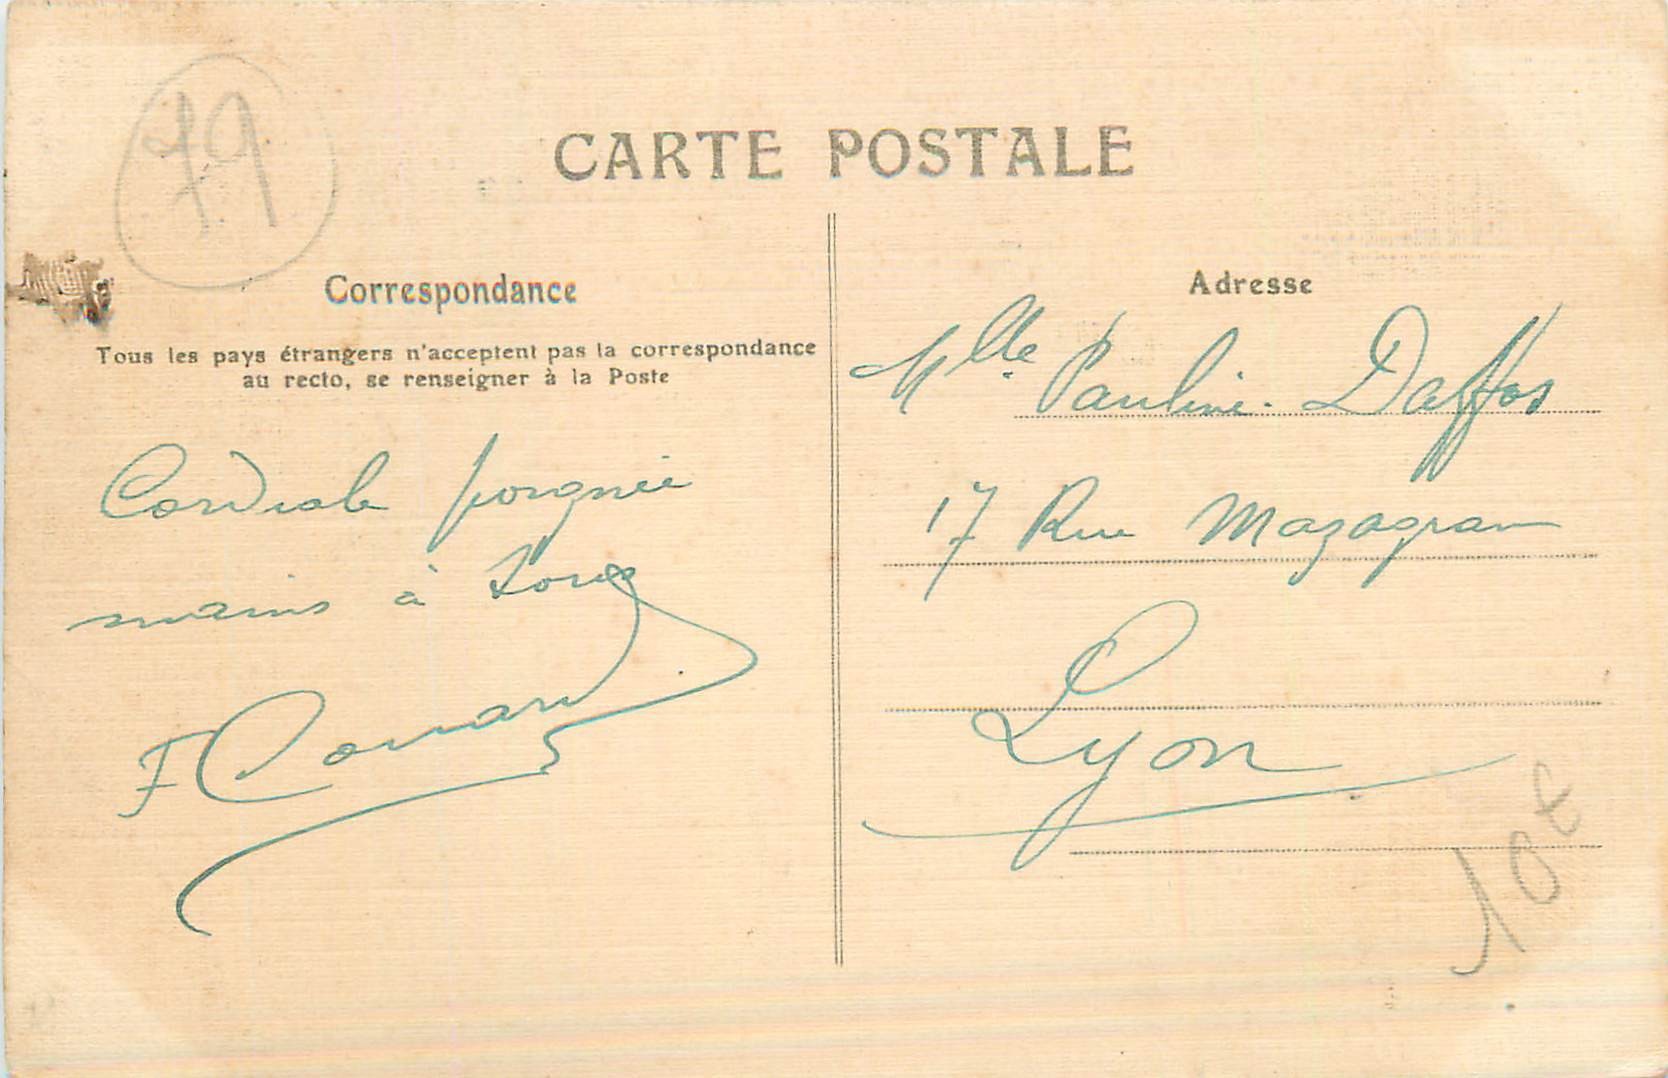 79
CARTE POSTALE
Correspondance
Tous les pays étrangers n'acceptent pas la correspondance
au recto, se renseigner à la Poste
Cordiale poignée
mains à tous
F Conard
Adresse
Mlle Pauline Daffos
17 Rue Mazagran
Lyon
10€